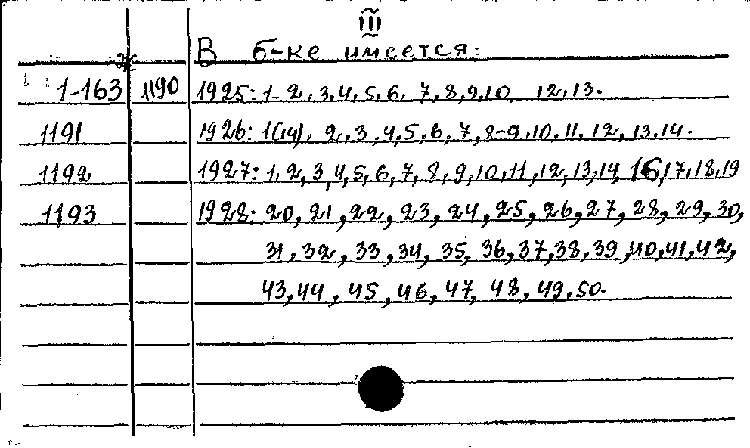 III
В б-ке имеется:
1-163 1190 1925: 1-2,3,4,5,6,7,8,9,10, 12,13.
1191 1926: 1(14), 2,3,4,5,6,7,8-9,10,11,12,13,14.
1192 1927: 1,2,3,4,5,6,7,8,9,10,11,12,13,14,16,17,18,19
1193 1928: 20,21,22,23,24,25,26,27,28,29,30,
31,32,33,34,35,36,37,38,39,40,41,42,
43,44,45,46,47,48,49,50.